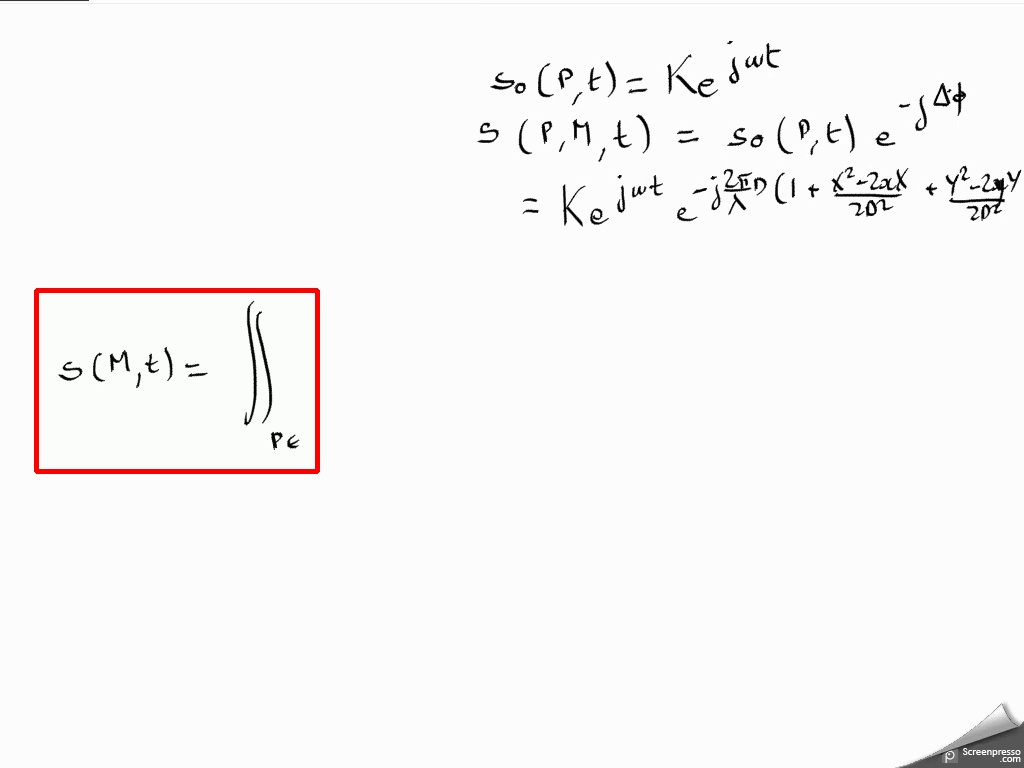 s₀(P,t) = K e^{jωt}
s(P,M,t) = s₀(P,t) e^{-jΔϕ}
= K e^{jωt} e^{-j\frac{2π}{λ}D(1 + \frac{X²-2xX}{2D²} + \frac{Y²-2yY}{2D²}}
s(M,t) = ∬_{P∈}
Screenpresso
.com